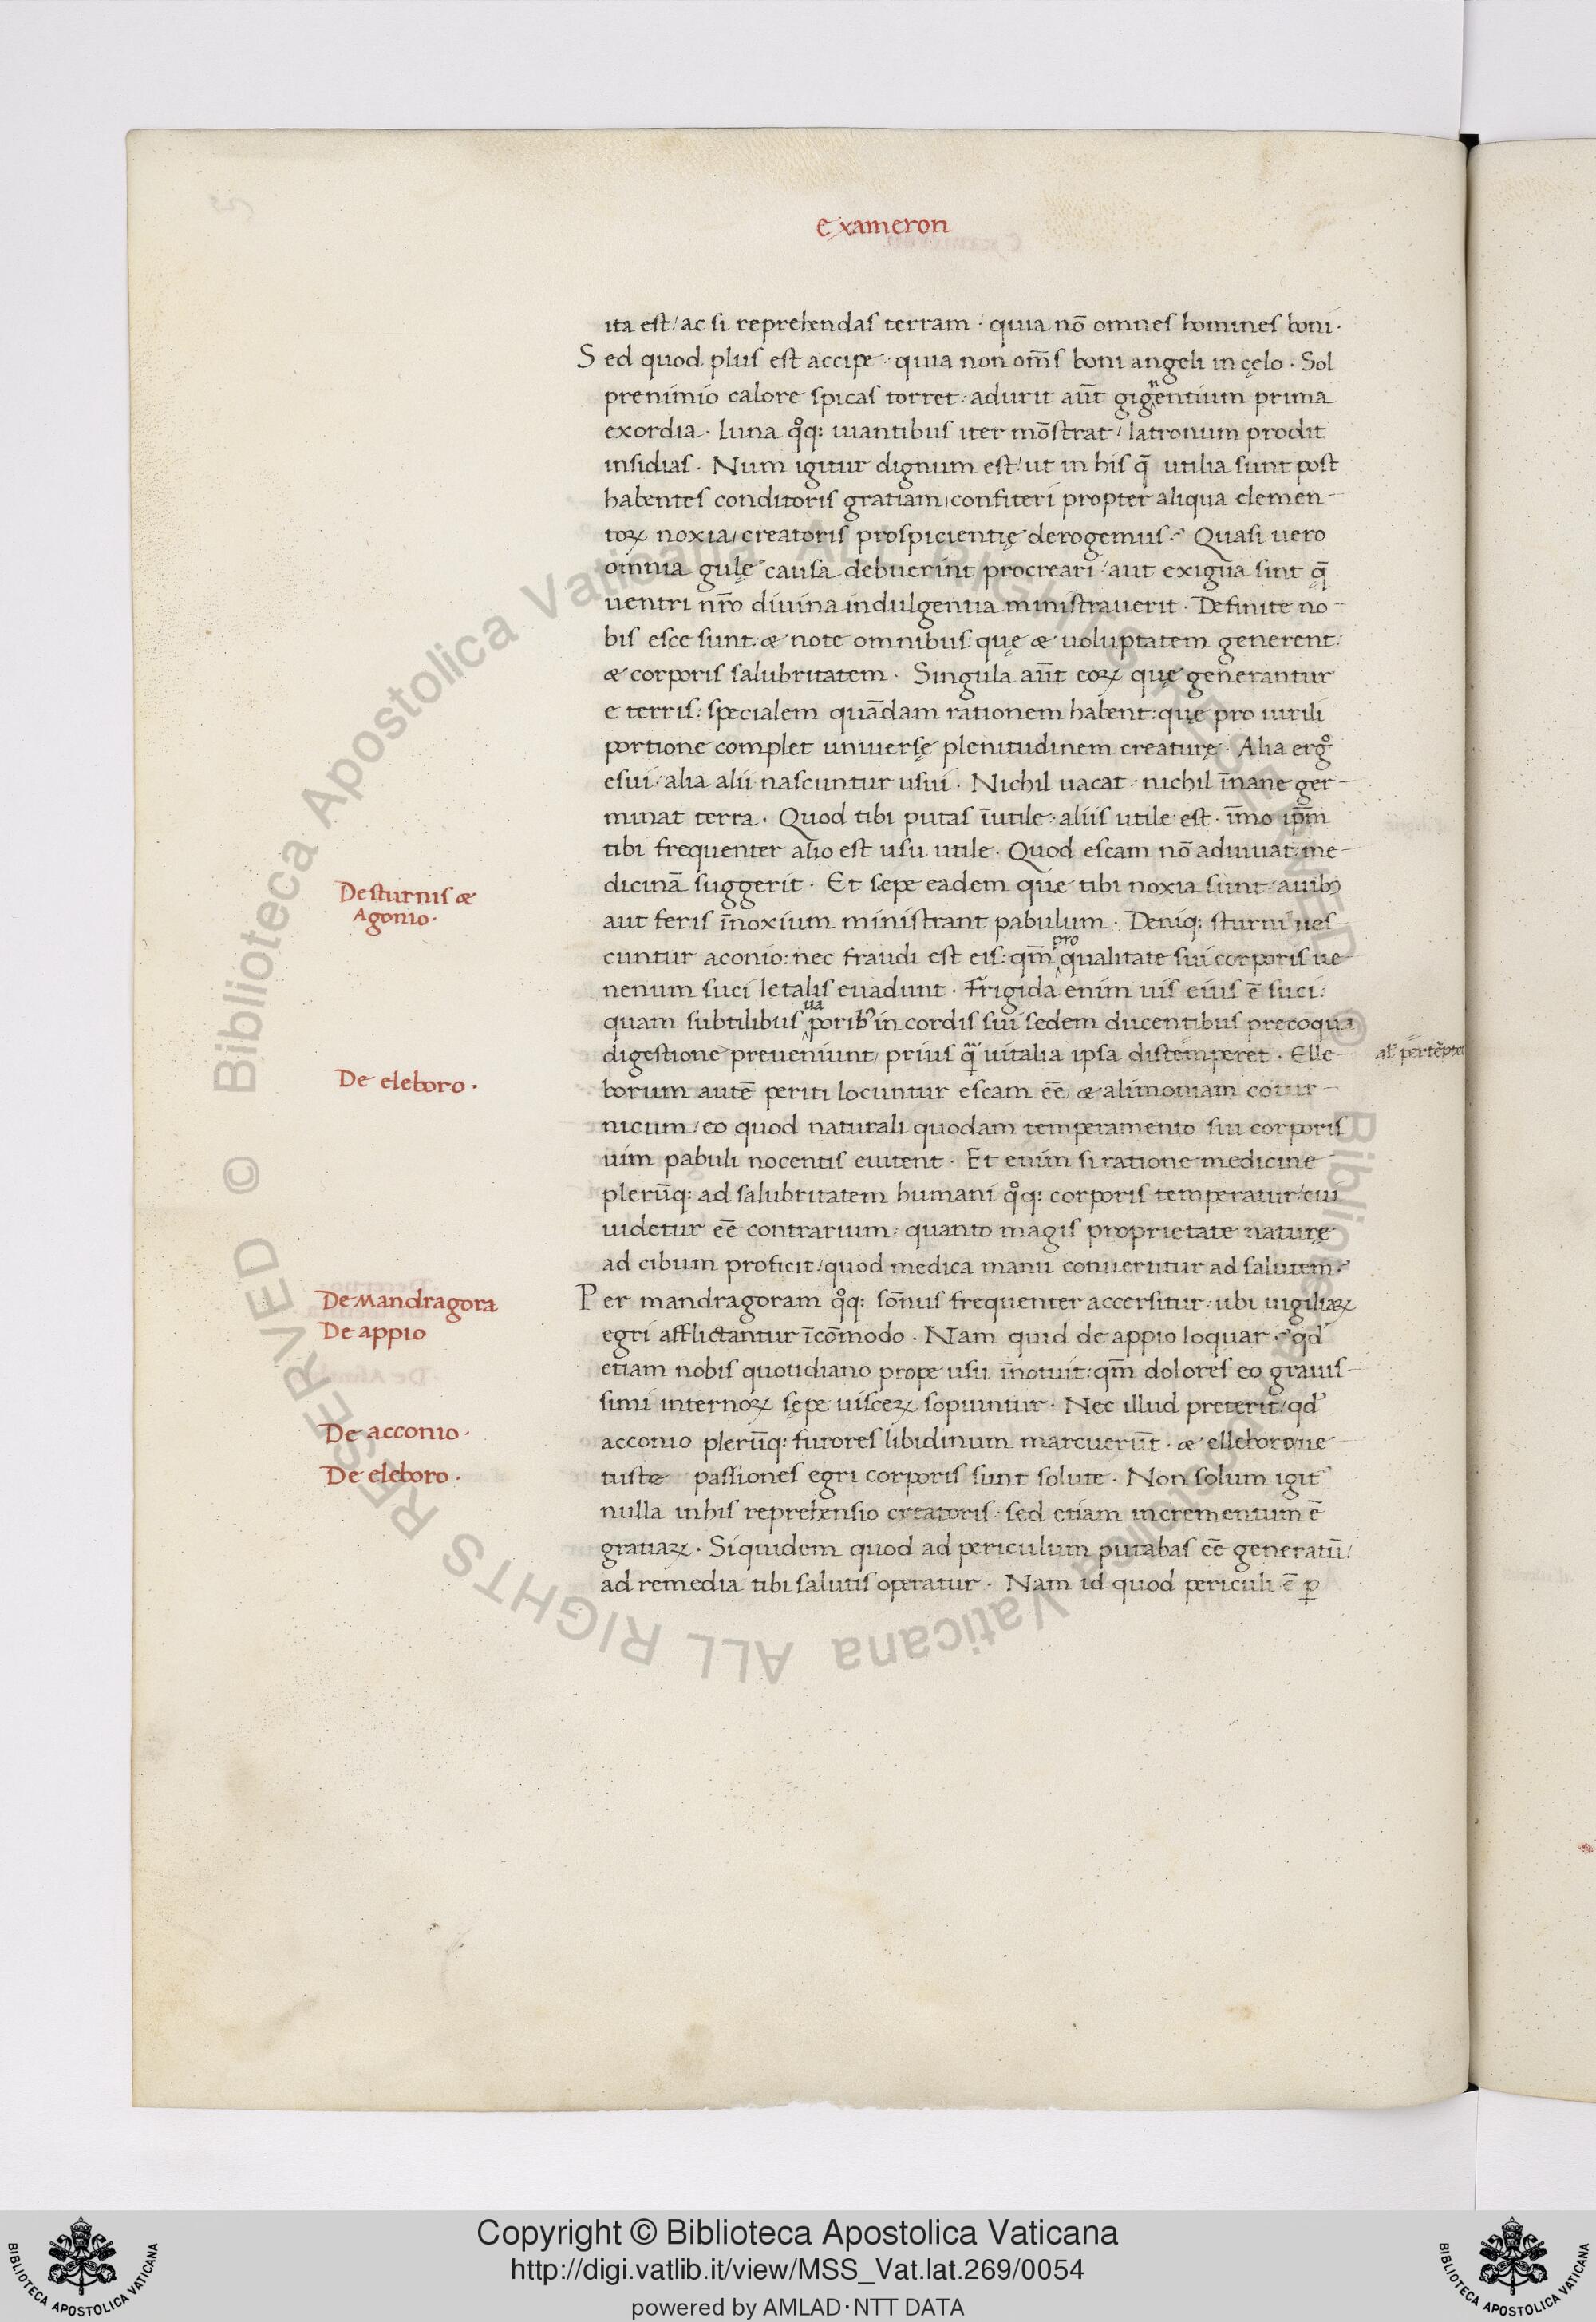 Exameron
ita est: ac si reprehendas terram: quia nō omnes homines boni.
Sed quod plus est accipe: quia non om̄s boni angeli in cęlo. Sol
prenimio calore spicas torret: adurit aūt gignentium prima
exordia. luna qͦq: uiantibus iter mōstrat/ latronum prodit
insidias. Num igitur dignum est: ut in his q̄ utilia sunt post
habentes conditoris gratiam, confiteri propter aliqua elemen-
toꝝ noxia, creatoris prospicientię derogemus? Quasi uero
omnia gulę causa debuerint procreari: aut exigua sint q̨̄
uentri nr̄o diuina indulgentia ministrauerit. Definite no-
bis esce sunt: & note omnibus: quę & uoluptatem generent:
& corporis salubritatem. Singula aūt eoꝝ quę generantur
e terris: specialem quādam rationem habent: quę pro uirili
portione complet uniuersę plenitudinem creaturę. Alia ergͦ
esui: alia alii nascuntur usui. Nichil uacat: nichil īnane ger-
minat terra. Quod tibi putas īutile: aliis utile est. īmo ip̄m
tibi frequenter alio est usu utile. Quod escam nō adiuuat: me-
dicinā suggerit. Et sepe eadem que tibi noxia sunt: auibꝫ
Desturnis &
Agonio.
aut feris īnoxium ministrant pabulum. Deniq: sturni ues-
pro
cuntur aconio: nec fraudi est eis: qm̄ qualitate sui corporis ue-
nenum suci letalis euadunt. Frigida enim uis eius ē suci:
ua
quam subtilibus poribꝰ in cordis sui sedem ducentibus precoqua
digestione preueniunt, prius q̄ uitalia ipsa distemperet. Elle-
De eleboro.
borum autē periti locuntur escam eē & alimoniam cotur-
nicum/ eo quod naturali quodam temperamento sui corporis
uim pabuli nocentis euitent. Et enim si ratione medicine
plerūq: ad salubritatem humani qͦq: corporis temperatur/ cui
uidetur eē contrarium: quanto magis proprietate naturę
ad cibum proficit/ quod medica manu conuertitur ad salutem?
De Mandragora
Per mandragoram qͦq: sōnus frequenter accersitur: ubi uigiliaꝝ
De appio
egri afflictantur īcōmodo. Nam quid de appio loquar? qd'
etiam nobis quotidiano prope usu īnotuit: qm̄ dolores eo grauis-
simi internoꝝ sępe uisceꝝ sopiuntur. Nec illud preterit/ qd'
De acconio.
acconio plerūq: furores libidinum marcuerūt. & elleboro ue-
De eleboro.
tuste passiones egri corporis sunt solute. Non solum igit'
nulla inhis reprehensio creatoris: sed etiam incrementum ē
gratiaꝝ. Siquidem quod ad periculum putabas eē generatū/
ad remedia tibi salutis operatur. Nam id quod periculi ē ꝑ
Copyright © Biblioteca Apostolica Vaticana
http://digi.vatlib.it/view/MSS_Vat.lat.269/0054
powered by AMLAD·NTT DATA
BIBLIOTECA APOSTOLICA VATICANA
BIBLIOTECA APOSTOLICA VATICANA
© Biblioteca Apostolica Vaticana ALL RIGHTS RESERVED
© Biblioteca Apostolica Vaticana ALL RIGHTS RESERVED